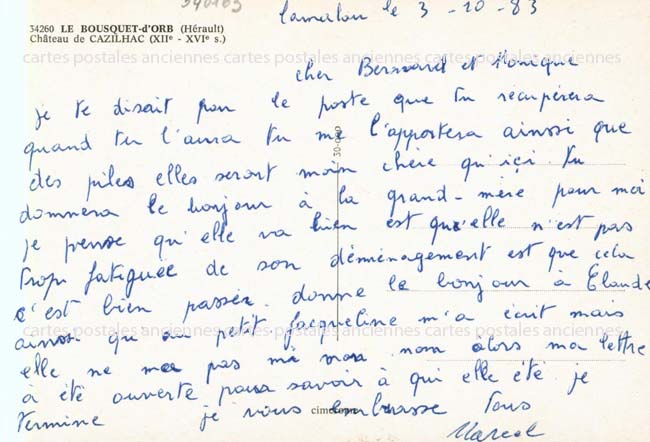 34260 LE BOUSQUET-d'ORB (Hérault)
Château de CAZILHAC (XIIe - XVIe s.)
Lamalou le 3 - 10 - 83
cher Bernard et Monique
je te disait pour le poste que tu récupérera
quand tu l'aura tu me l'apportera ainsi que
des piles elles seront moin chère qu'içi. tu
donnera le bonjour à la grand-mère pour moi
je pense qu'elle va bien est qu'elle n'est pas
trop fatiguée de son déménagement est que cela
c'est bien passée. donne le bonjour à Claude
cartes postales anciennes cartes postales anciennes cartes postales anciennes
ainsi qu'au petit. Jacqueline m'a écrit mais
elle ne ma pas mi son nom alors ma lettre
à été ouverte pour savoir à qui elle été je
termine je vous embrasse tous
cimecopro
Marcel